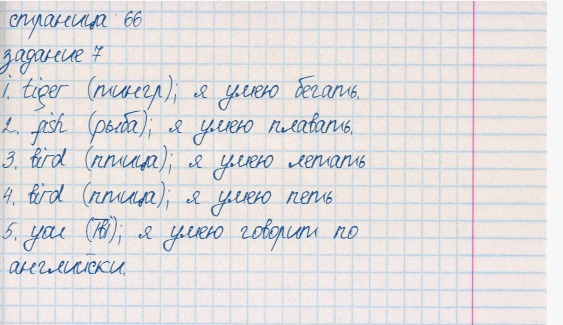 страница 66
задание 7
1. tiger (тингр); я умею бегать.
2. fish (рыба); я умею плавать.
3. bird (птица); я умею летать
4. bird (птица); я умею петь
5. you (ты); я умею говорит по
английски.